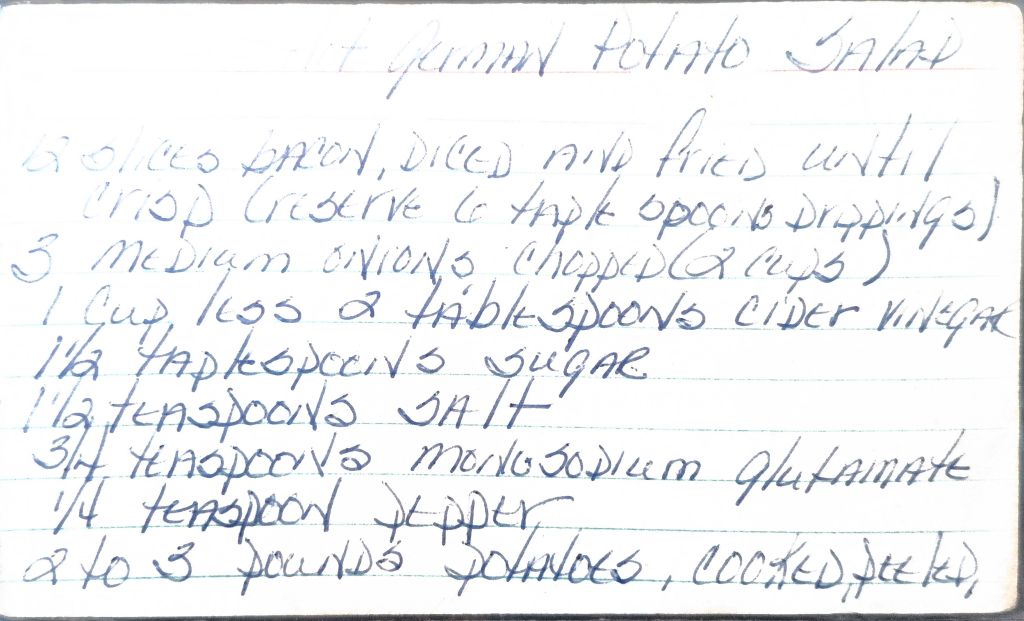 Hot German Potato Salad
12 slices bacon, diced and fried until
crisp (reserve 6 tablespoons drippings)
3 medium onions, chopped (2 cups)
1 cup, less 2 tablespoons cider vinegar
1 1/2 tablespoons sugar
1 1/2 teaspoons salt
3/4 teaspoons monosodium glutamate
1/4 teaspoon pepper
2 to 3 pounds potatoes, cooked, peeled,